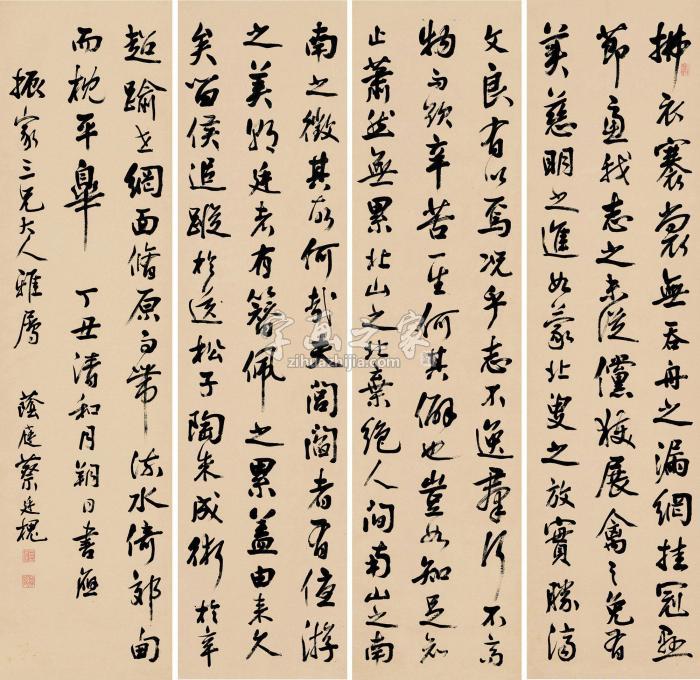 拂衣褰裳無吞舟之漏網挂冠懸
節慮我志之未從儻獲展禽之免有
美慈明之進如蒙北叟之放實勝濟
文良有以焉況乎志不逸群行不高
物而欲辛苦一生何其僻也豈如知足知
止蕭然無累北山之北棄絕人間南山之南
南之徵其故何哉夫閭閻者有優游
之美朝廷者有簪佩之累蓋由來久
矣留侯追蹤於松子陶朱成術於辛
超踰世網面脩原而帶流水倚郊甸
而枕平皋 丁丑清和月朔日書應
振家三兄大人雅屬 蔭庭蔡廷槐
字画之家
zihuazhijia.com